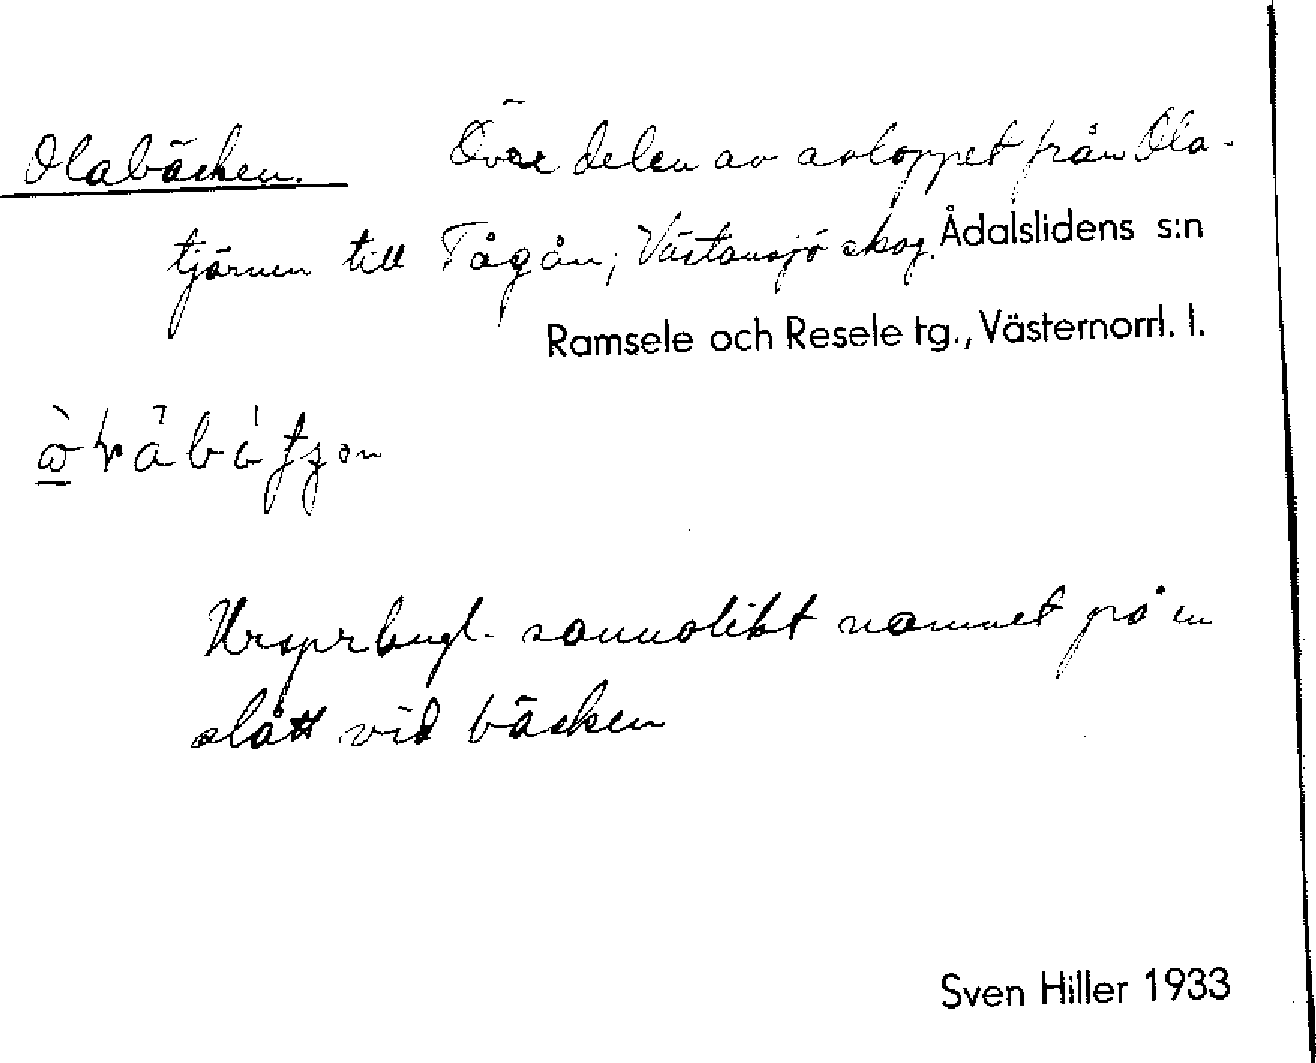 Olabäcken. Övre delen av avloppet från Ola-
tjärnen till Tågån; Västansjö skog. Ådalslidens s:n
Ramsele och Resele tg., Västernorrl. l.
Ursprungl. sannolikt namnet på en
slått vid bäcken
Sven Hiller 1933